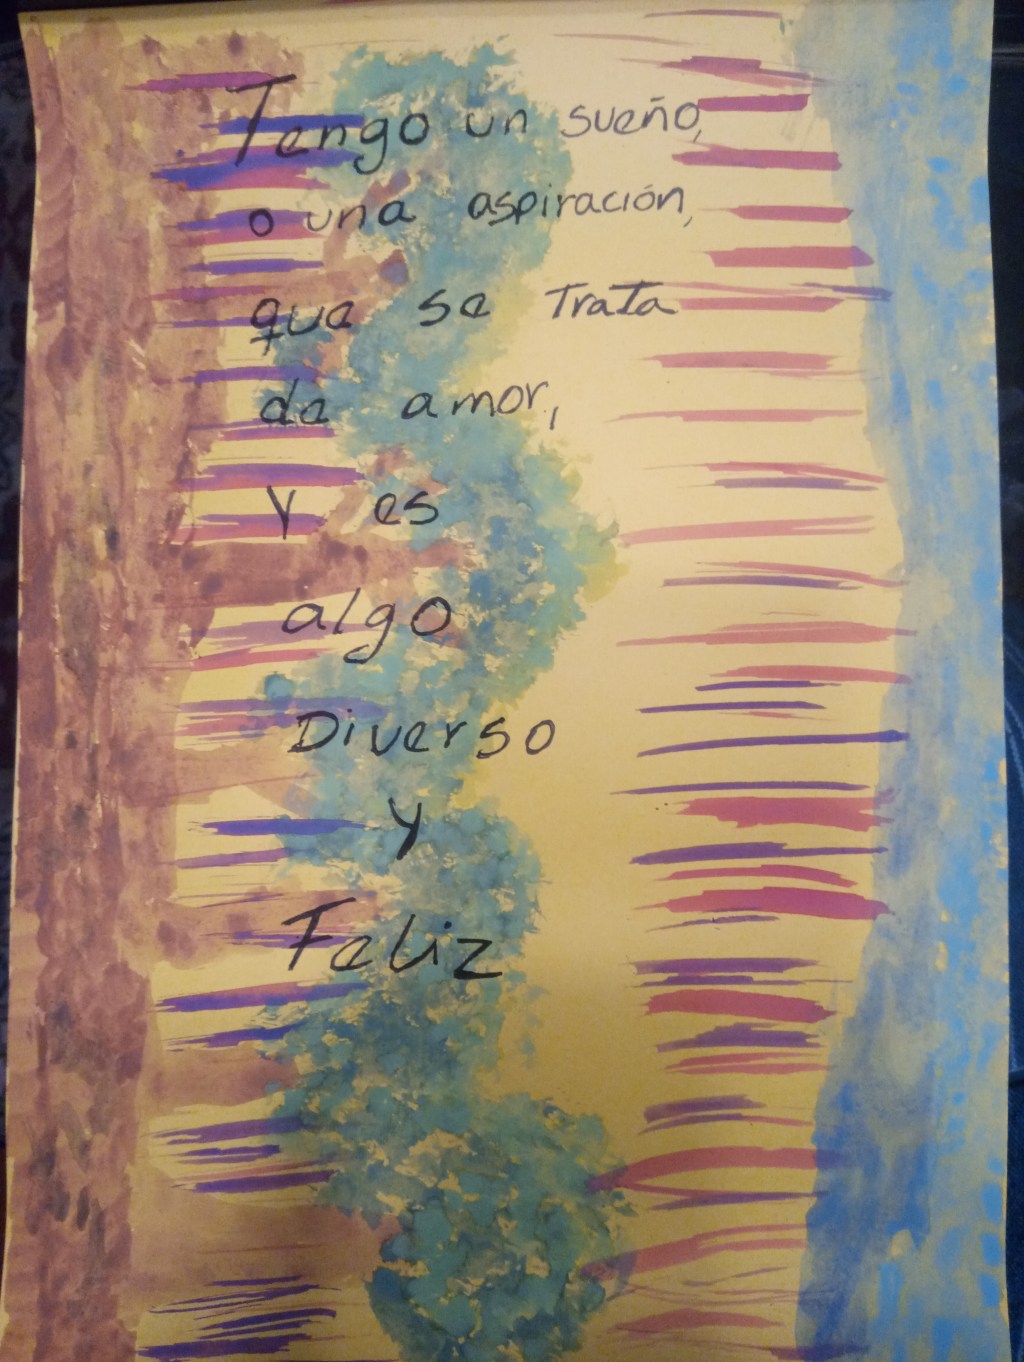 Tengo un sueño,
o una aspiración,
que se Trata
de amor,
y es
algo
Diverso
y
Feliz